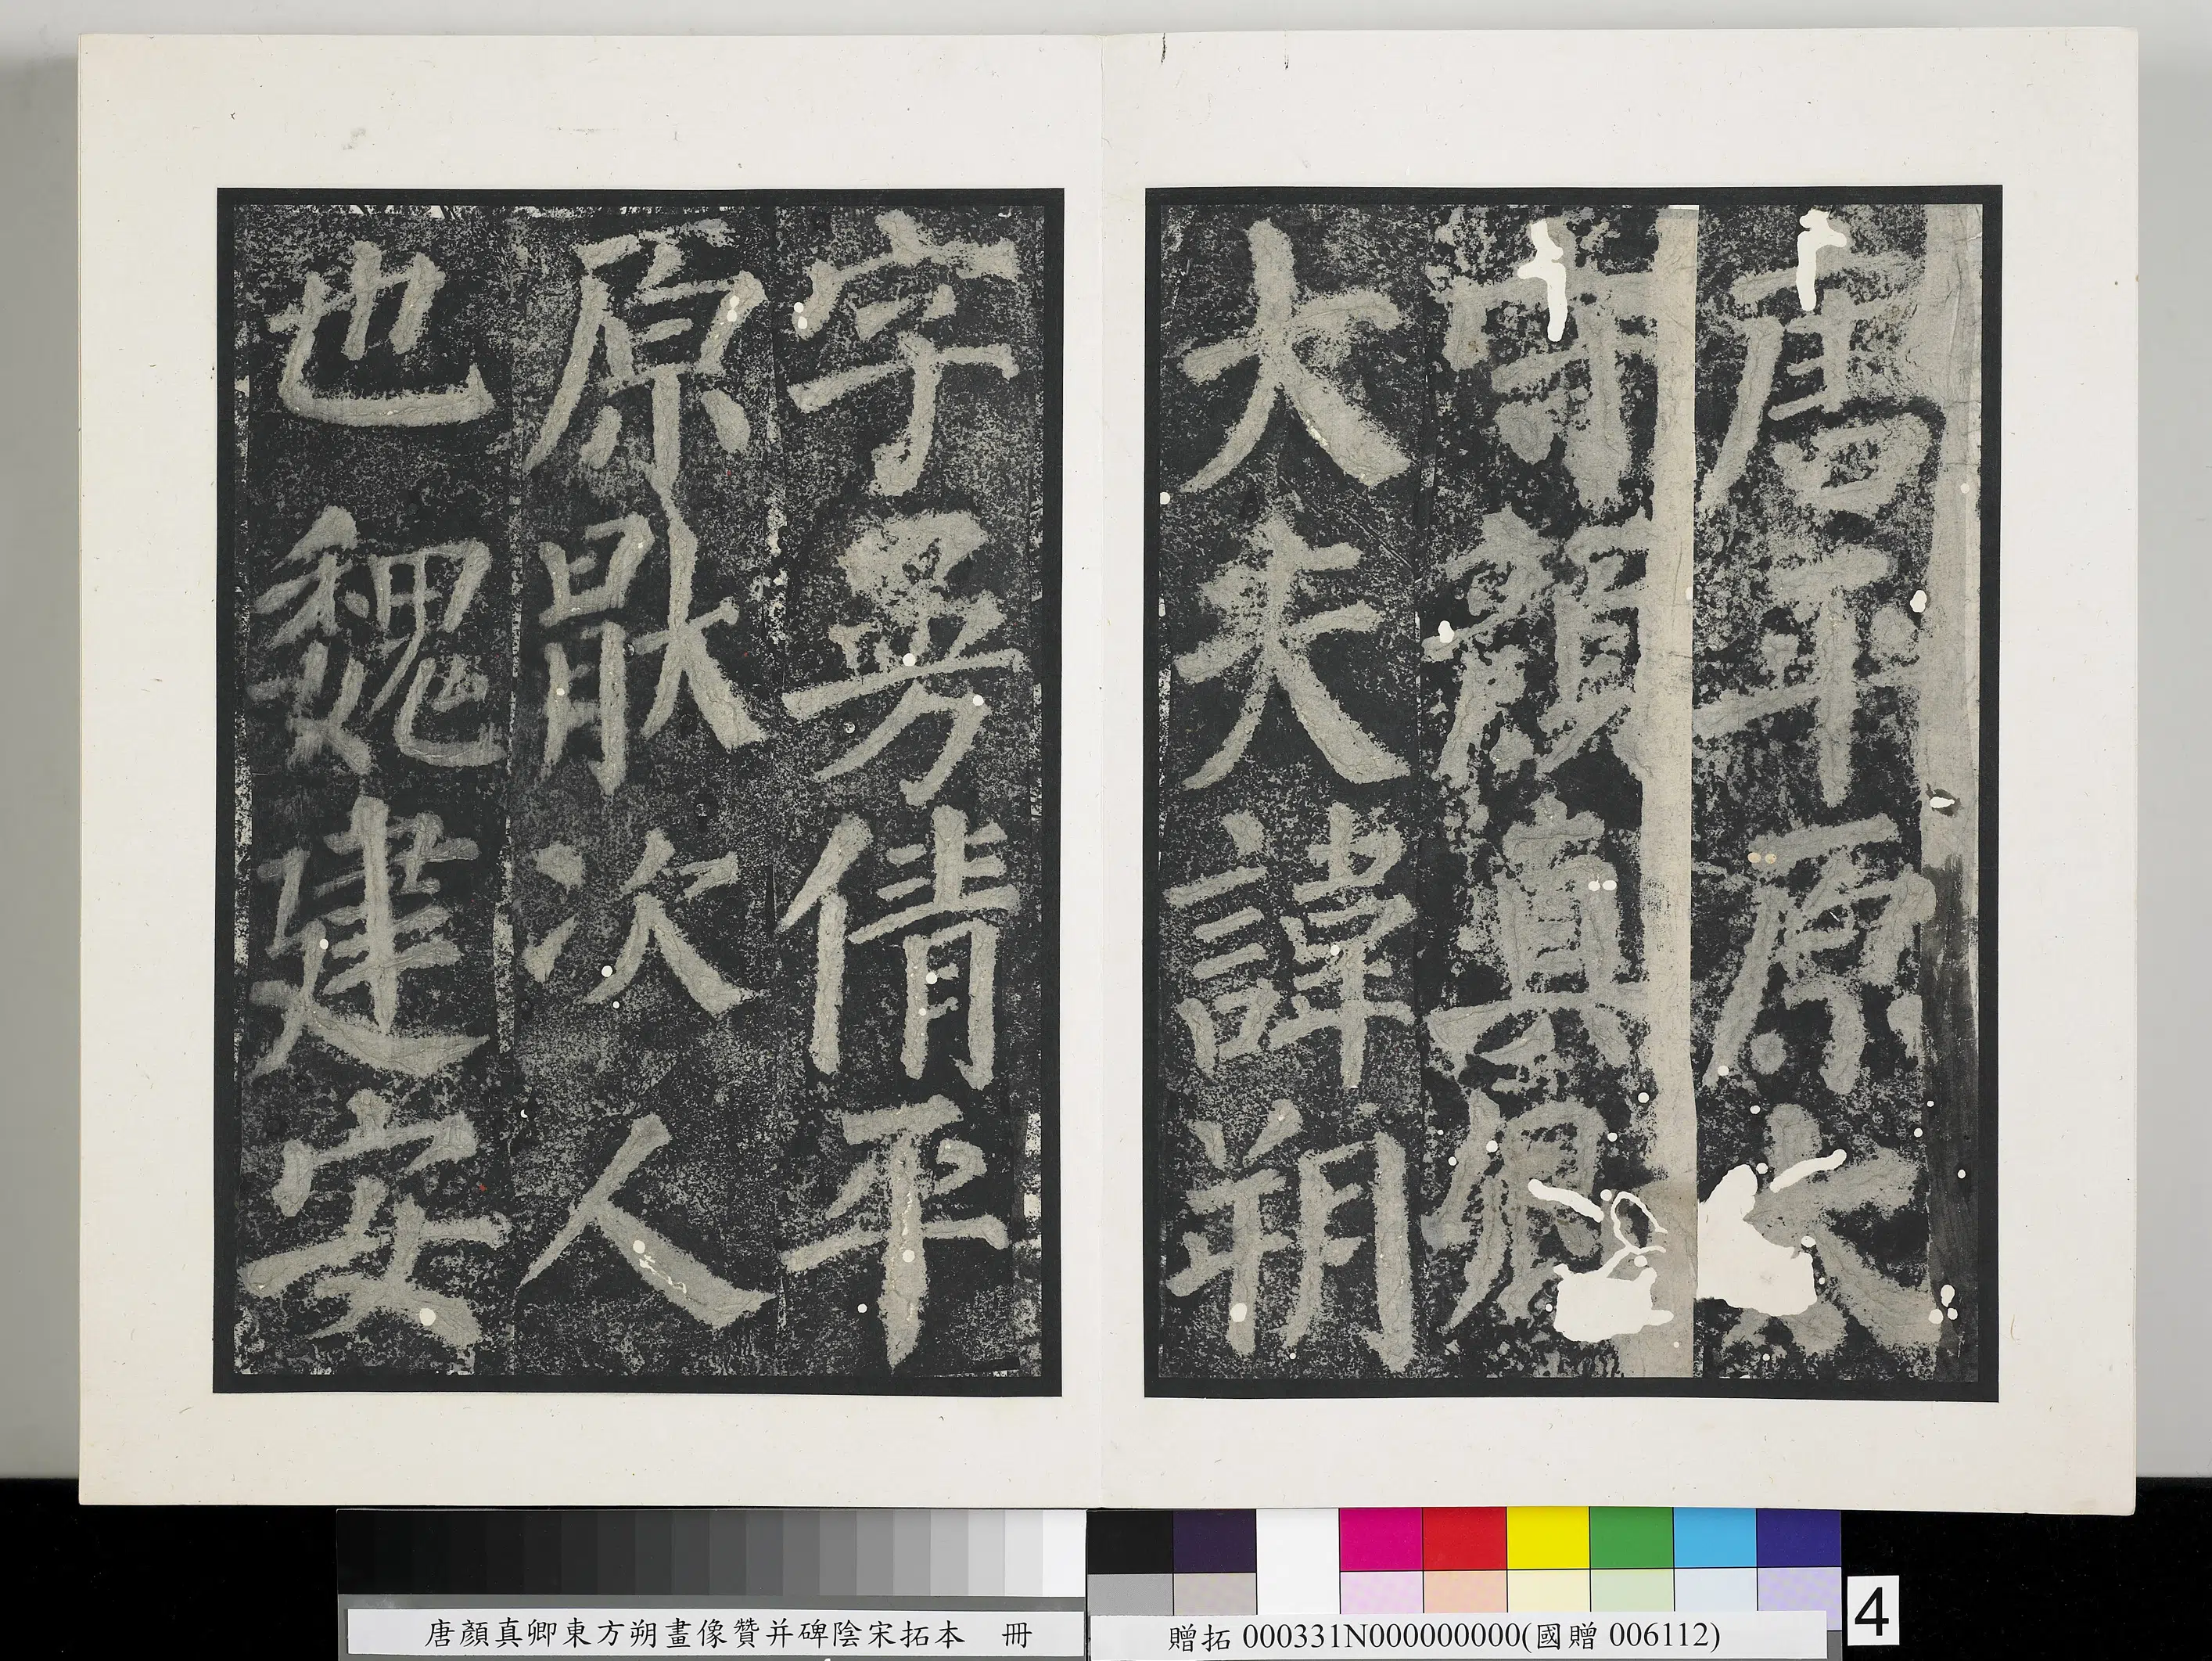 唐平原太
守顏真卿
大夫諱朔
字曼倩平
原猒次人
也魏建安
唐顏真卿東方朔畫像贊并碑陰宋拓本 冊
贈拓 000331N000000000(國贈 006112)
4